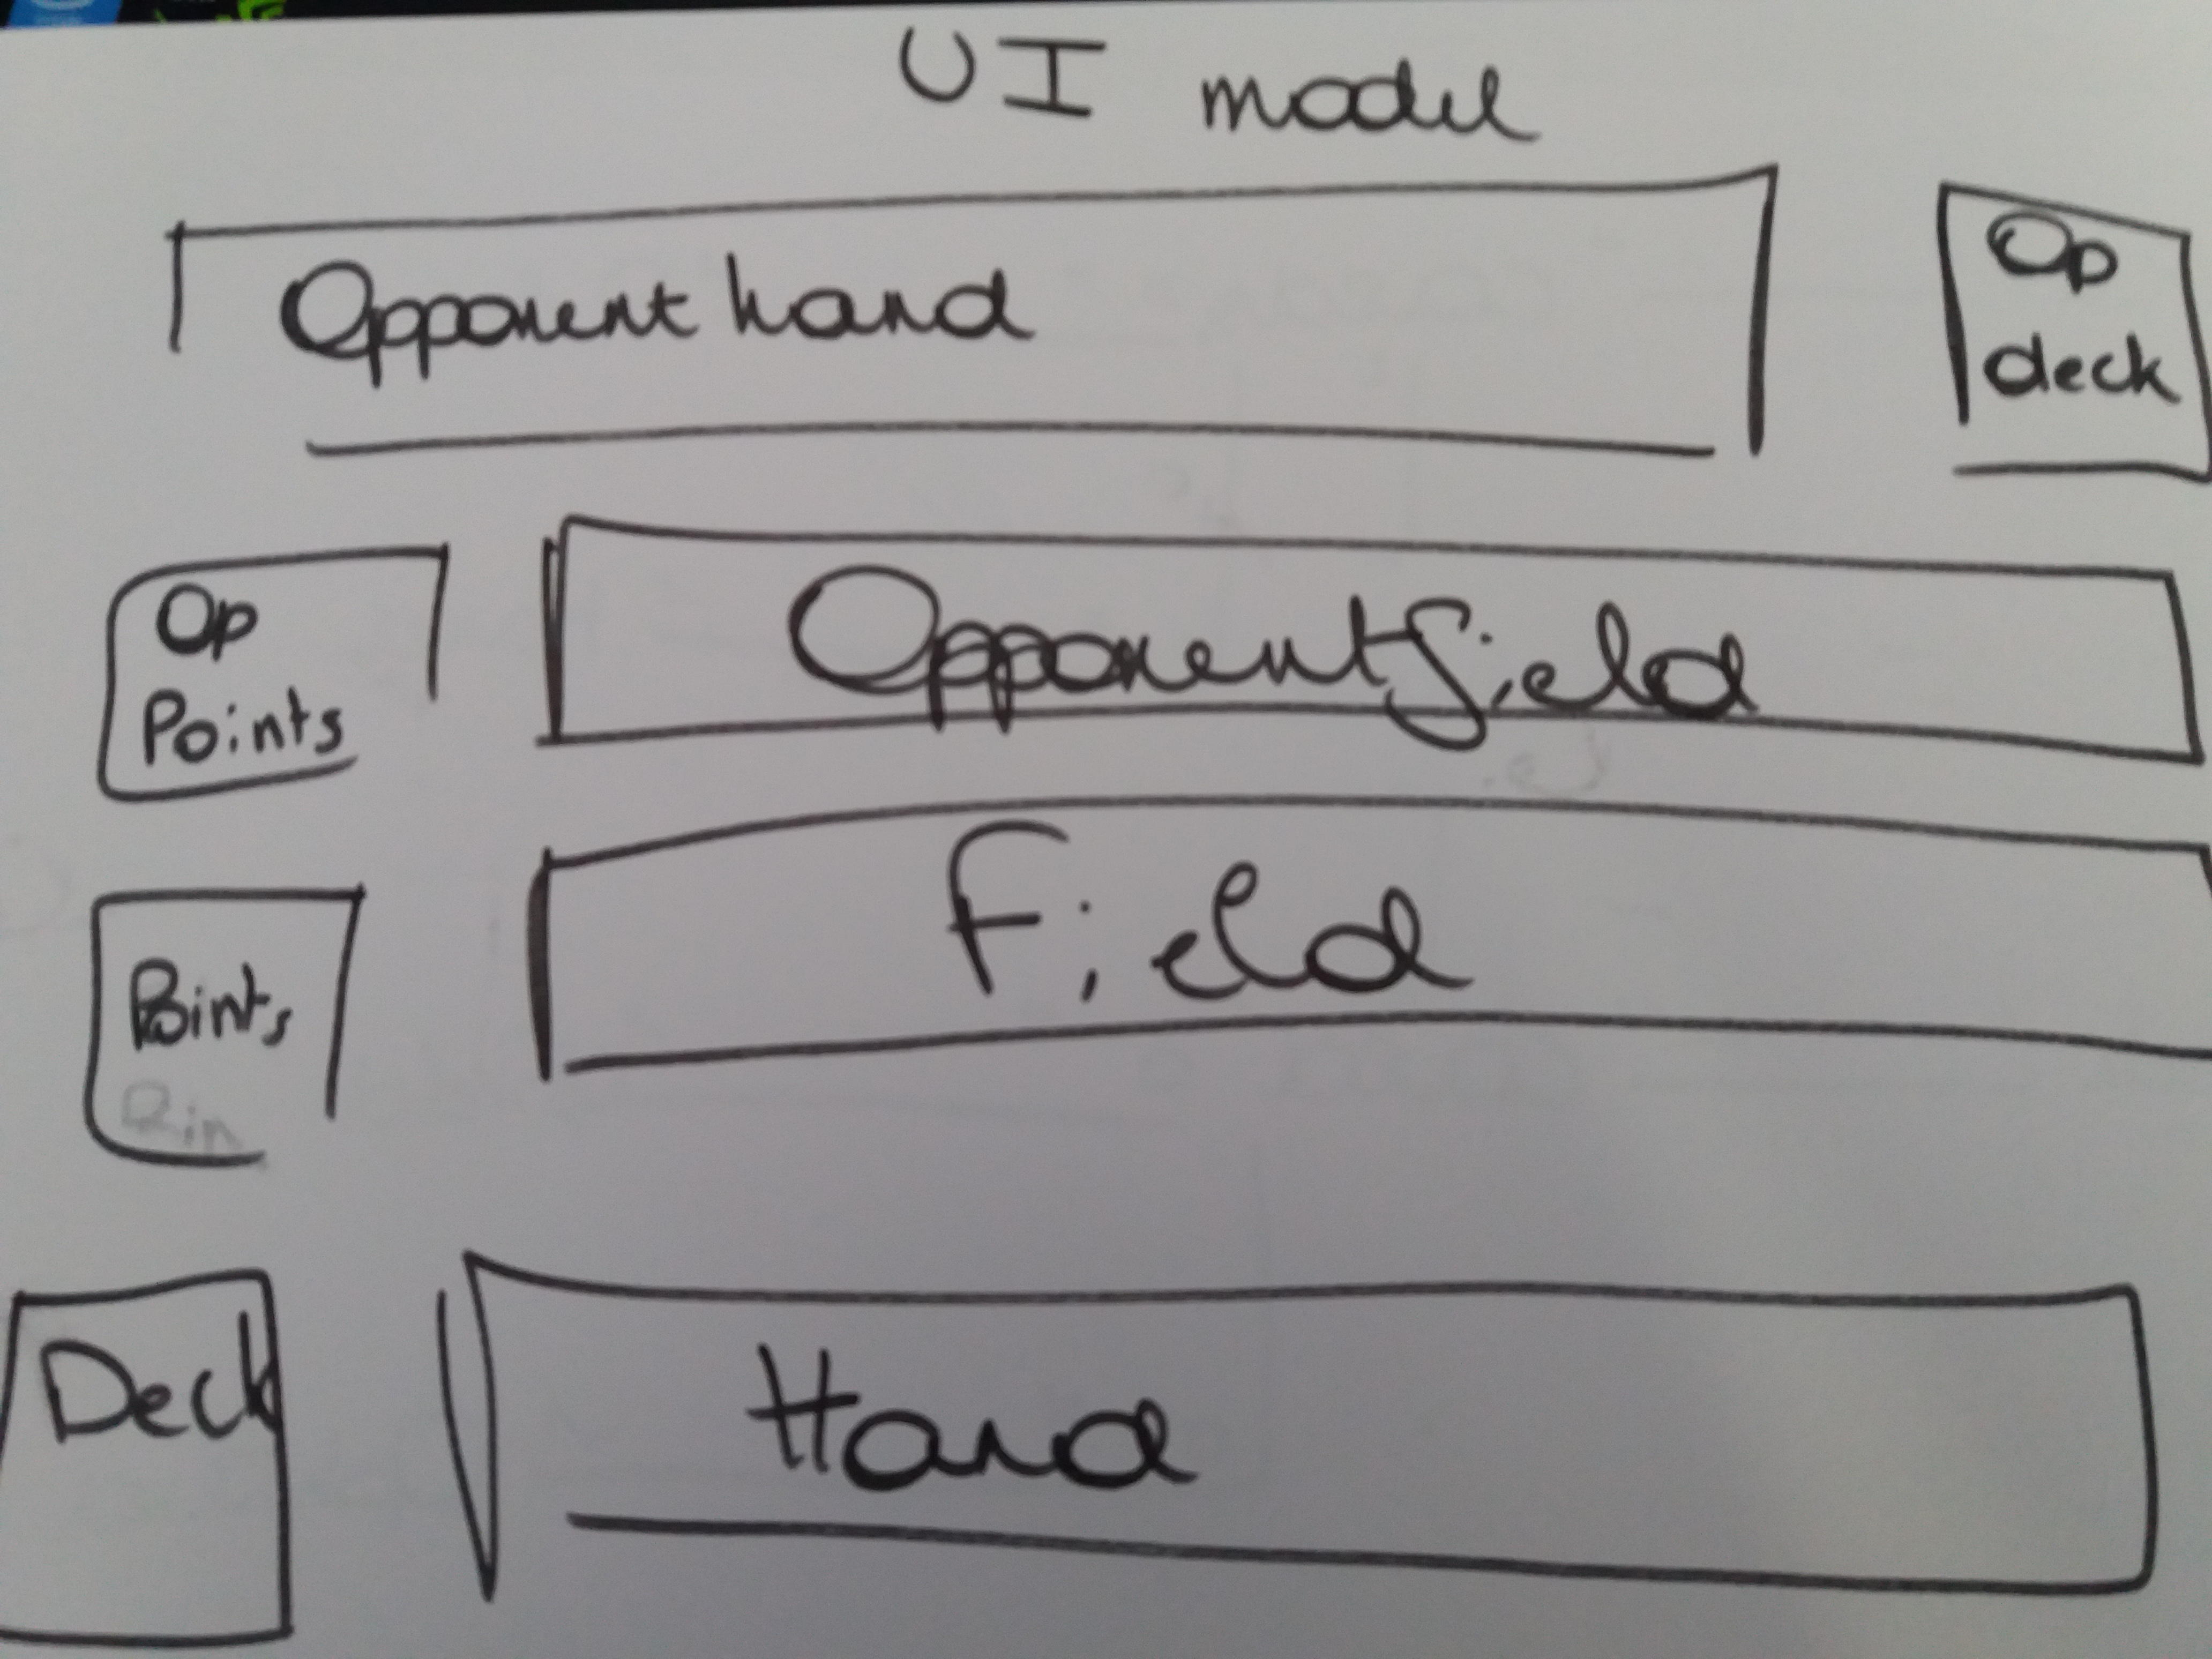 UI model
Opponent hand
Op
deck
Op
Points
Opponent field
Points
Field
Deck
Hand